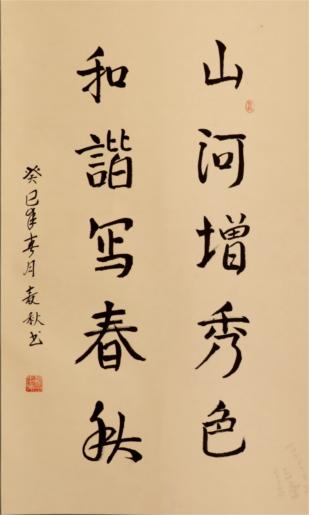 山河增秀色
和諧写春秋
癸巳年春月袁秋书